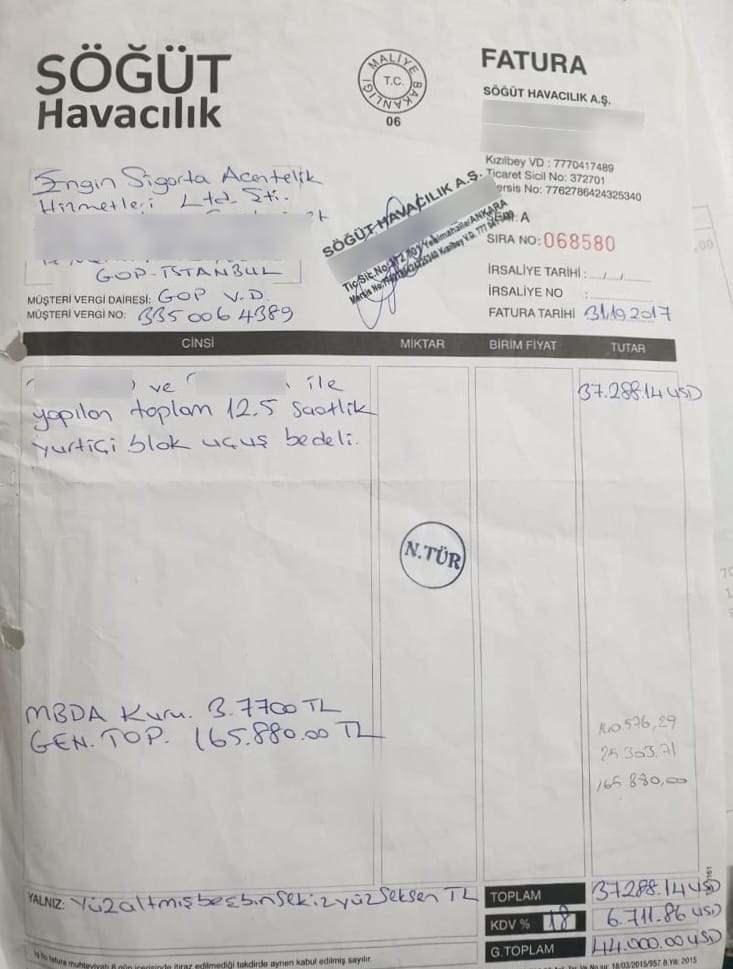 SÖĞÜT
Havacılık
MALİYE BAKANLIĞI
T.C.
06
FATURA
SÖĞÜT HAVACILIK A.Ş.
Kızılbey VD : 7770417489
Ticaret Sicil No: 372701
ersis No: 7762786424325340
Engin Sigorta Acentelik
Hizmetleri Ltd. Şti.
GOP-İSTANBUL
MÜŞTERİ VERGİ DAİRESİ: GOP V.D.
MÜŞTERİ VERGİ NO: 3350064389
SÖĞÜT HAVACILIK A.Ş.
Yenimahalle/ANKARA
A
SIRA NO: 068580
İRSALİYE TARİHİ : ../../
İRSALİYE NO :
FATURA TARİHİ 31.10.2017
CİNSİ MİKTAR BİRİM FİYAT TUTAR
ve ile 37.288.14 USD
yapılan toplam 12.5 saatlik
yurtiçi blok uçuş bedeli.
N.TÜR
MBDA Kuru. 3.7700 TL
GEN. TOP. 165.880.00 TL
140.576,29
25.303.71
165 880,00
YALNIZ: Yüzaltmışbeşbinsekizyüzseksen TL
TOPLAM 37288.14 USD
KDV % 18 6.711.86 USD
G.TOPLAM 44.000.00 USD
fatura muhteviyatı 8 gün içerisinde itiraz edilmediği takdirde aynen kabul edilmiş sayılır.